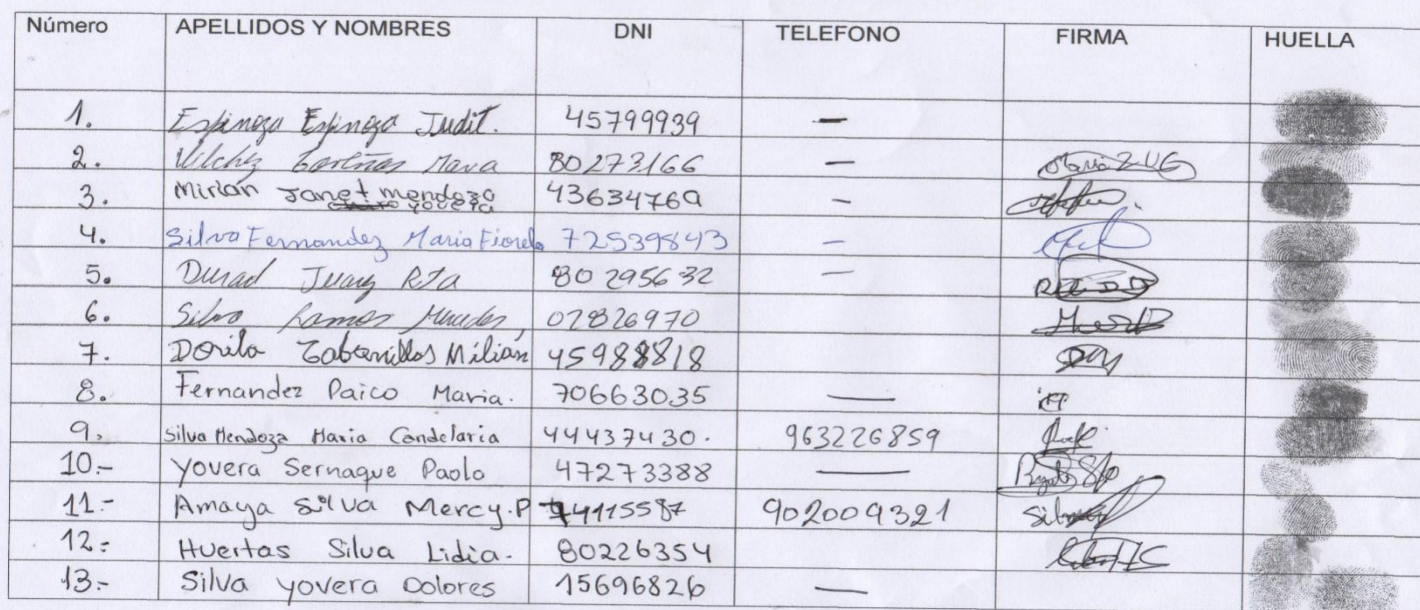 Número APELLIDOS Y NOMBRES DNI TELEFONO FIRMA HUELLA
1. Espinoza Espinoza Judit. 45799939 —
2. Vilchez Maria 80273166 —
3. Mirian Janet mendoza yovera 43634769 —
4. Silva Fernandez Maria Fiorela 72539843 —
5. Juarez 80295632 —
6. Silva Ramos Mercedes 02826970
7. Dorila Tabanillas Milian 45988818
8. Fernandez Paico Maria. 70663035 —
9. Silva Mendoza Maria Candelaria 44437430. 963226859
10.- Yovera Sernaque Paolo 47273388 —
11.- Amaya Silva Mercy.P 74115587 902009321
12.- Huertas Silva Lidia. 80226354
13.- Silva yovera Dolores 15696826 —